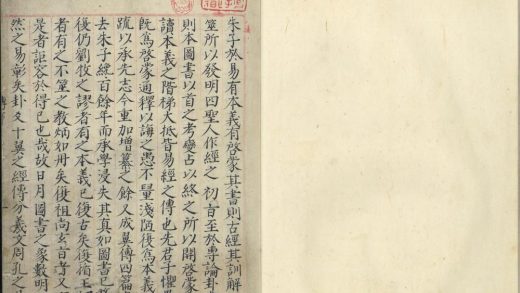 朱子於易有本義有啓蒙其書則古經其訓解
筮所以發明四聖人作經之初旨至於專論卦
則本圖書以首之考變占以終之所以開啓蒙
讀本義之階梯大抵皆易經之傳也先君子懼
既爲啓蒙通釋以誨之愚不量淺陋復爲本義
䟽以承先志今重加增纂之餘又成翼傳四篇
去朱子纔百餘年而承學浸失其真如圖書已
復仍劉牧之謬者有之本義已復古矣復循王
者有之卜筮之教炳如丹矣復祖尚玄旨者又
是者詎容於得已也哉故日月圖書之象數明
然之易彰矣卦爻十翼之經傳分羲文周孔之